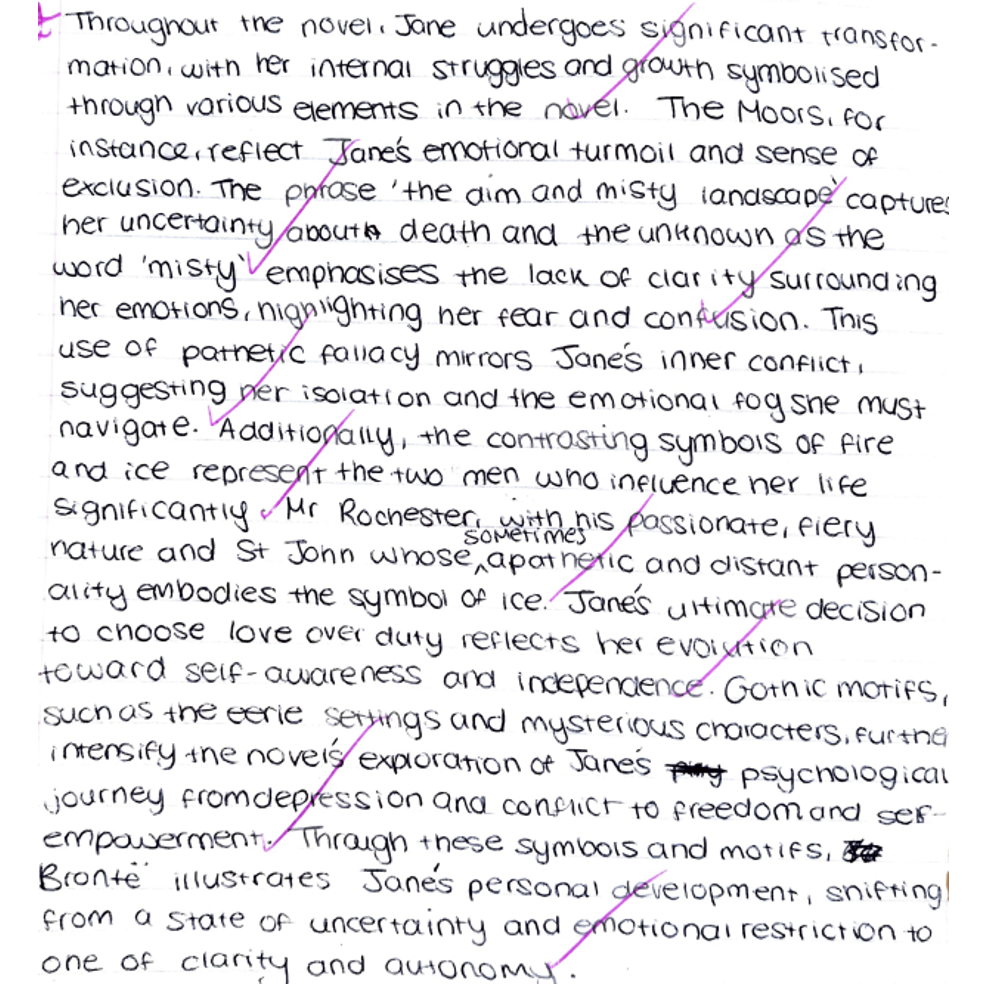 Throughout the novel, Jane undergoes significant transfor-
mation, with her internal struggles and growth symbolised
through various elements in the novel. The Moors, for
instance, reflect Jane's emotional turmoil and sense of
exclusion. The phrase 'the dim and misty landscape' captures
her uncertainty about death and the unknown as the
word 'misty' emphasises the lack of clarity surrounding
her emotions, highlighting her fear and confusion. This
use of pathetic fallacy mirrors Jane's inner conflict,
suggesting her isolation and the emotional fog she must
navigate. Additionally, the contrasting symbols of fire
and ice represent the two men who influence her life
significantly. Mr Rochester, with his passionate, fiery
nature and St John whose sometimes apathetic and distant person-
ality embodies the symbol of ice. Jane's ultimate decision
to choose love over duty reflects her evolution
toward self-awareness and independence. Gothic motifs,
such as the eerie settings and mysterious characters, furthe
intensify the novel's exploration of Jane's psychological
journey from depression and conflict to freedom and self-
empowerment. Through these symbols and motifs,
Brontë illustrates Jane's personal development, shifting
from a state of uncertainty and emotional restriction to
one of clarity and autonomy.